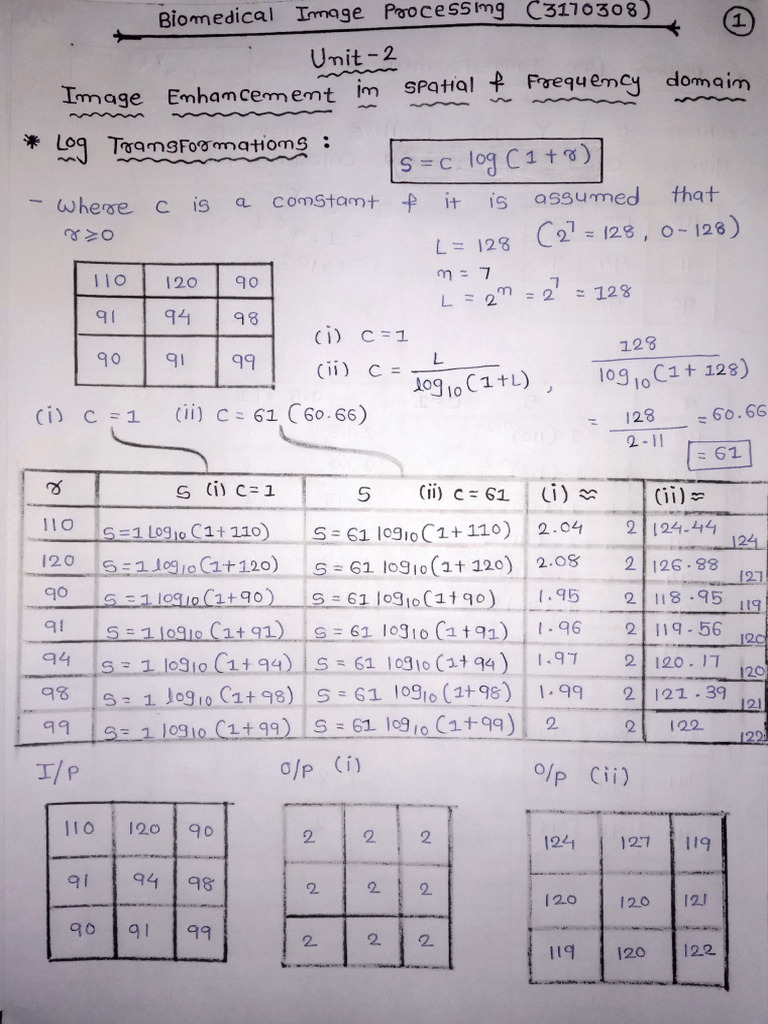 Biomedical Image Processing (3170308)
1
Unit-2
Image Enhancement in spatial & Frequency domain
* Log Transformations : S = C log (1+r)
- Where C is a constant & it is assumed that
r ≥ 0
L = 128 (2^7 = 128, 0-128)
n = 7
L = 2^n = 2^7 = 128
110 120 90
91 94 98
90 91 99
(i) C = 1
(ii) C = L / log10 (1+L) , 128 / log10 (1+128)
= 128 / 2.11 = 60.66
= 61
(i) C = 1 (ii) C = 61 (60.66)
r S (i) C=1 S (ii) C=61 (i) ≈ (ii) ≈
110 S=1 Log10 (1+110) S=61 log10 (1+110) 2.04 2 124.44 124
120 S=1 log10 (1+120) S=61 log10 (1+120) 2.08 2 126.88 127
90 S=1 log10 (1+90) S=61 log10 (1+90) 1.95 2 118.95 119
91 S=1 log10 (1+91) S=61 log10 (1+91) 1.96 2 119.56 120
94 S=1 log10 (1+94) S=61 log10 (1+94) 1.97 2 120.17 120
98 S=1 log10 (1+98) S=61 log10 (1+98) 1.99 2 121.39 121
99 S=1 log10 (1+99) S=61 log10 (1+99) 2 2 122 122
I/P O/P (i) O/P (ii)
110 120 90 2 2 2 124 127 119
91 94 98 2 2 2 120 120 121
90 91 99 2 2 2 119 120 122